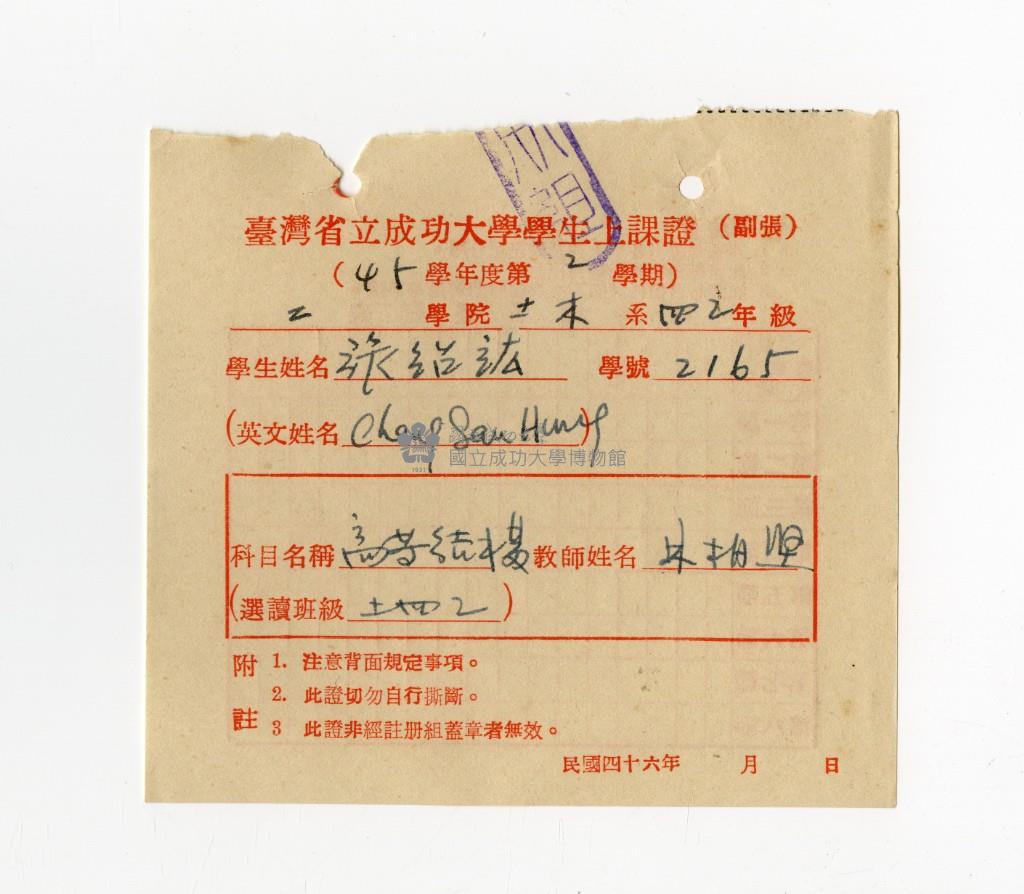 臺灣省立成功大學學生上課證 (副張)
(45學年度第2學期)
工學院土木系四乙年級
學生姓名 張紹 學號 2165
(英文姓名 Chang Sau Hung)
國立成功大學博物館
1931
科目名稱 高等結構 教師姓名 朱相堅
(選讀班級 土四乙)
附註
1. 注意背面規定事項。
2. 此證切勿自行撕斷。
3 此證非經註册組蓋章者無效。
民國四十六年 月 日